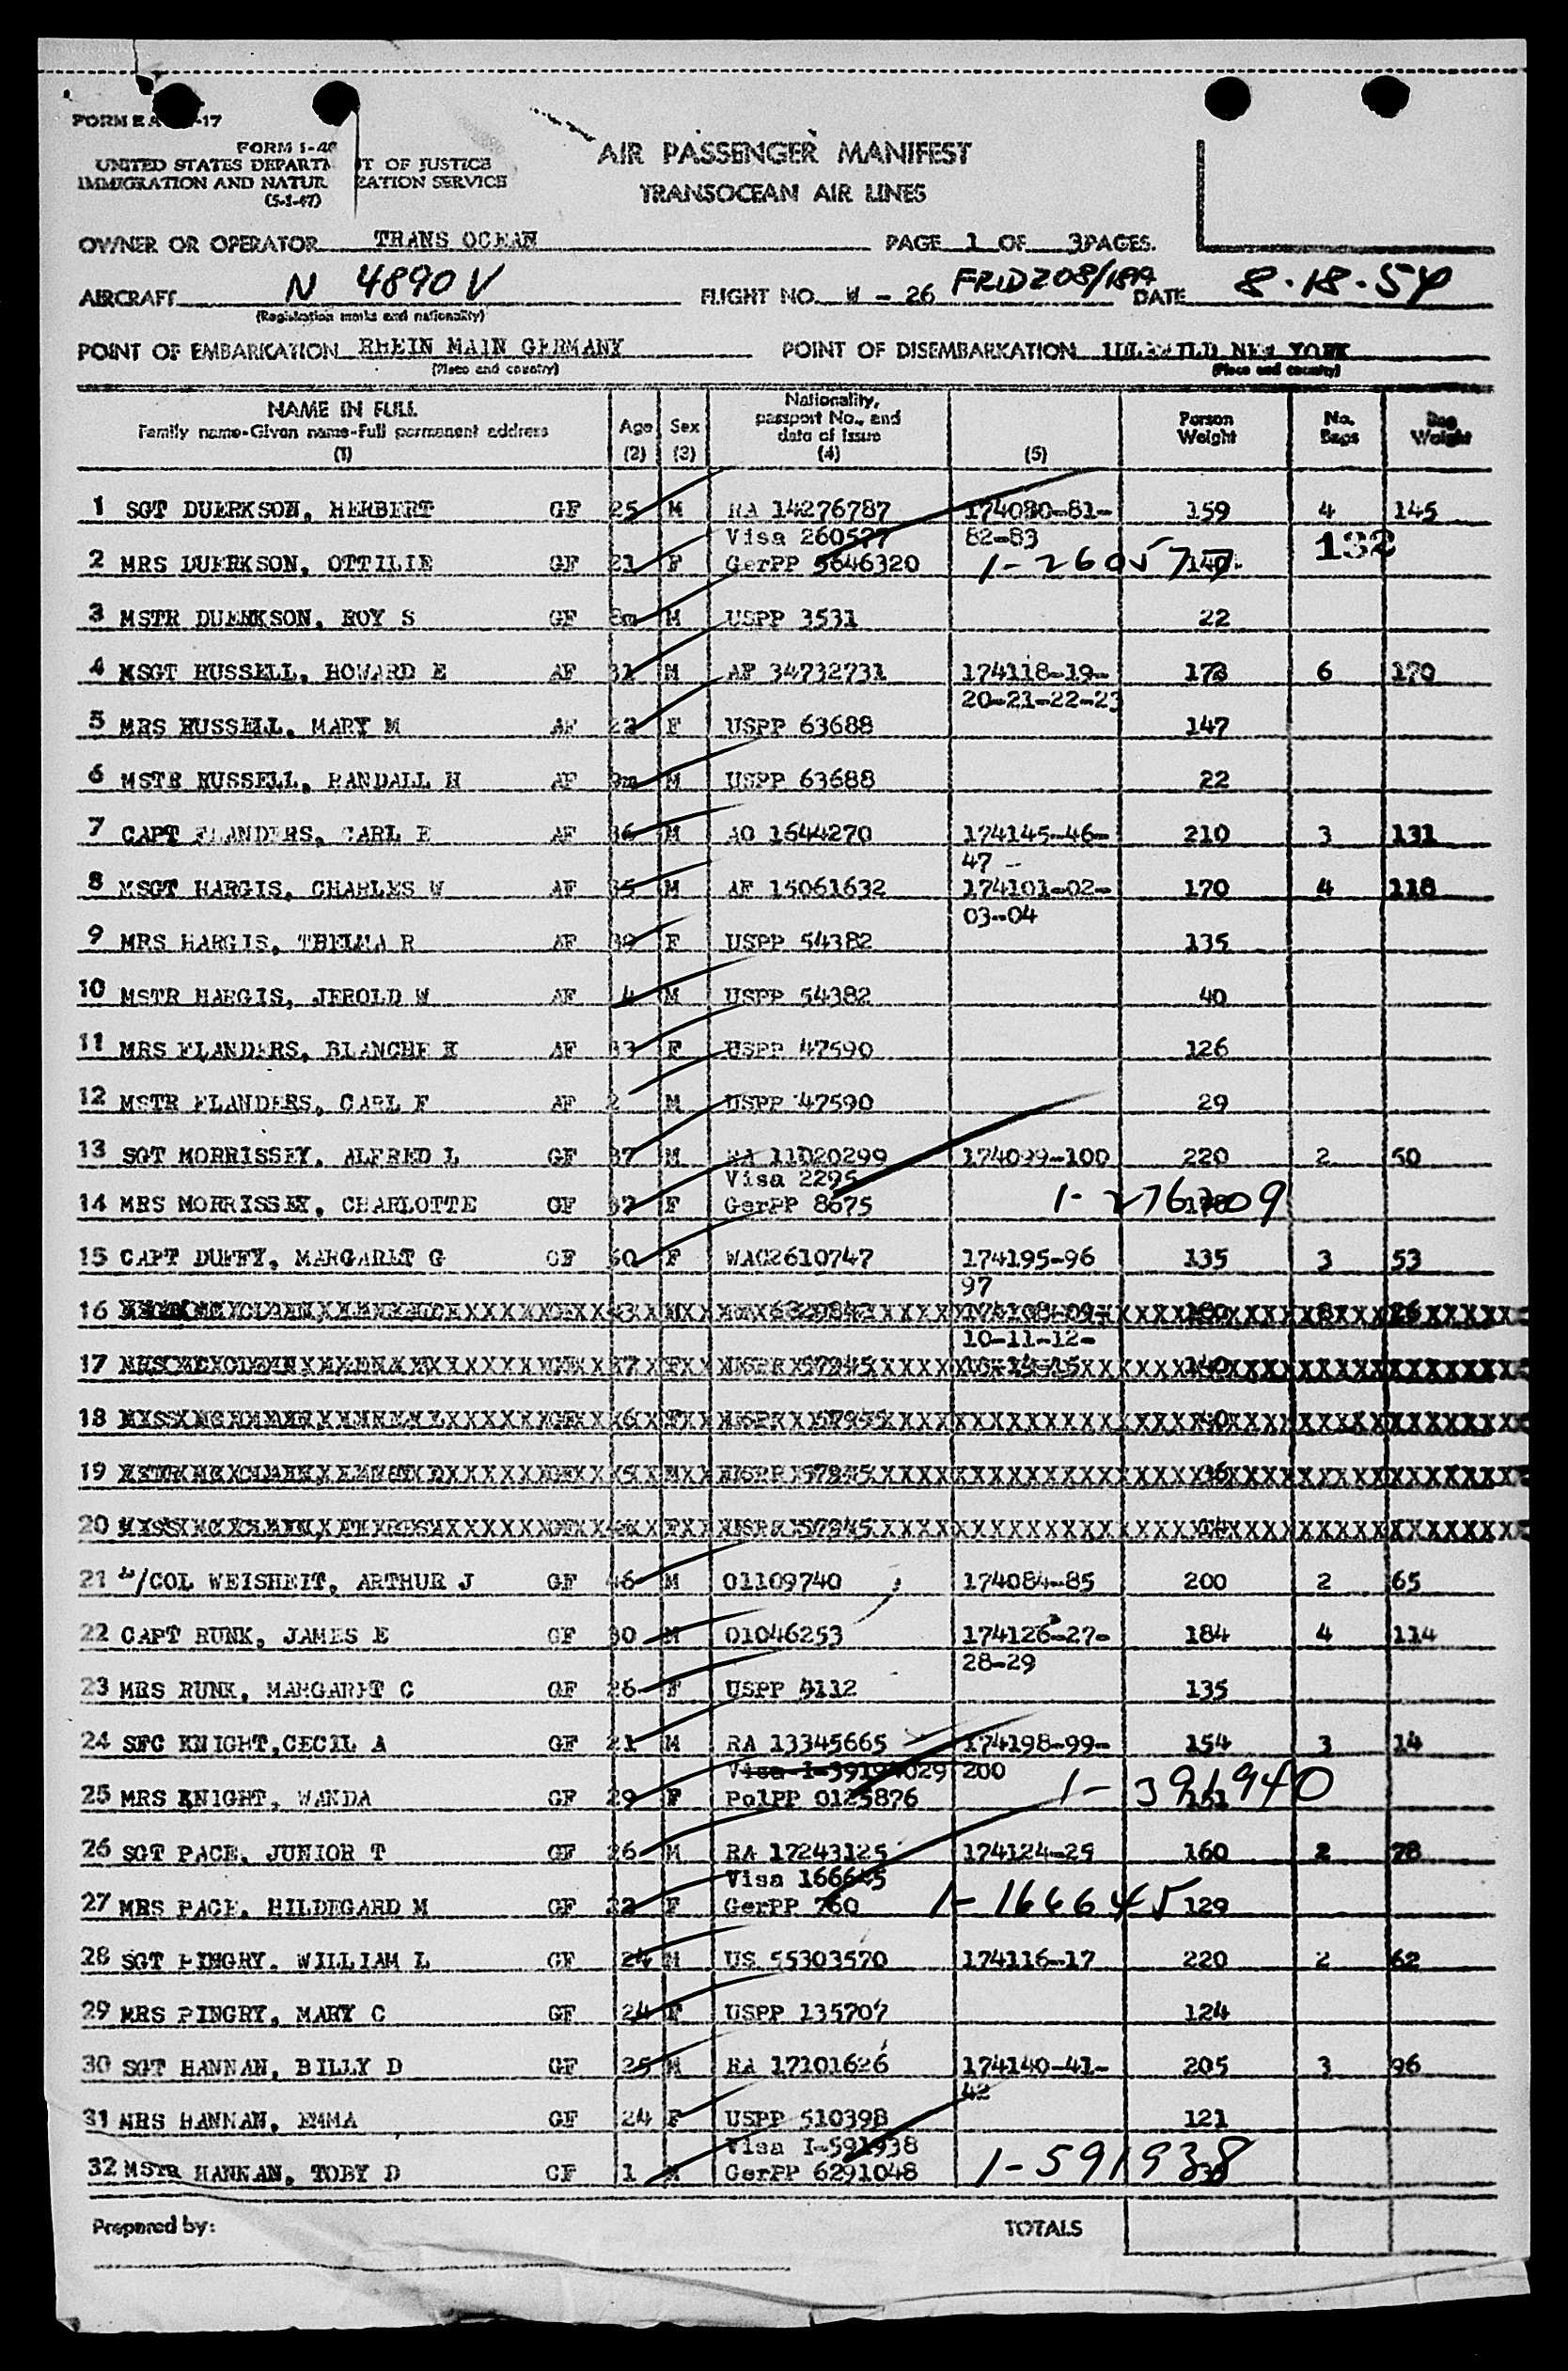 FORM 1-
UNITED STATES DEPARTM OF JUSTICE
IMMIGRATION AND NATUR ZATION SERVICE
(5-1-47)
AIR PASSENGER MANIFEST
TRANSOCEAN AIR LINES
OWNER OR OPERATOR TRANS OCEAN PAGE 1 OF 3 PAGES.
AIRCRAFT N 4890V FLIGHT NO. W - 26 DATE 8-18-54
(Registration marks and nationality)
POINT OF EMBARKATION RHEIN MAIN GERMANY POINT OF DISEMBARKATION NEW YORK
(Place and country) (Place and country)
NAME IN FULL Age Sex Nationality, passport No., and date of issue Person Weight No. Bags Bag Weight
Family name-Given name-Full permanent address
(1) (2) (3) (4) (5)
1 SGT DUERKSON, HERBERT GF 25 M RA 14276787 174080-81- 159 4 145
Visa 260577 82-83 132
2 MRS DUERKSON, OTTILIE GF 21 F GerPP 5646320 1-260577
3 MSTR DUERKSON, ROY S GF 8m M USPP 3531 22
4 MSGT RUSSELL, HOWARD E AF 31 M AF 34732731 174118-19- 173 6 170
20-21-22-23
5 MRS RUSSELL, MARY M AF F USPP 63688 147
6 MSTR RUSSELL, RANDALL H AF 9m M USPP 63688 22
7 CAPT FLANDERS, CARL E AF 36 M AO 1644270 174145-46- 210 3 131
47
8 MSGT HARGIS, CHARLES W AF 35 M AF 15061632 174101-02- 170 4 118
03-04
9 MRS HARGIS, THELMA R AF F USPP 54382 135
10 MSTR HARGIS, JEROLD W AF 4 M USPP 54382 40
11 MRS FLANDERS, BLANCHE K AF 33 F USPP 47590 126
12 MSTR FLANDERS, CARL F AF 2 M USPP 47590 29
13 SGT MORRISSEY, ALFRED L GF 37 M RA 11020299 174099-100 220 2 50
Visa 2295
14 MRS MORRISSEY, CHARLOTTE GF F GerPP 8675 1-276709
15 CAPT DUFFY, MARGARET G GF F WAC2610747 174195-96 135 3 53
97
16
10-11-12-
17
18
19
20
21 L/COL WEISHEIT, ARTHUR J GF 46 M 01109740 174084-85 200 2 65
22 CAPT RUNK, JAMES E GF 30 M 01046253 174126-27- 184 4 114
28-29
23 MRS RUNK, MARGARET C GF 26 F USPP 9112 135
24 SFC KNIGHT, CECIL A GF 21 M RA 13345665 174198-99- 154 3 14
Visa I-39194029 200
25 MRS KNIGHT, WANDA GF 29 F PolPP 0125876 1-391940
26 SGT PACE, JUNIOR T GF 26 M RA 17243125 174124-25 160 2 78
Visa 166645
27 MRS PACE, HILDEGARD M GF 22 F GerPP 760 1-166645 129
28 SGT PINGRY, WILLIAM L GF 24 M US 55303570 174116-17 220 2 62
29 MRS PINGRY, MARY C GF 24 F USPP 135707 124
30 SGT HANNAN, BILLY D GF 25 M RA 17101626 174140-41- 205 3 96
42
31 MRS HANNAN, EMMA GF 24 F USPP 510398 121
Visa I-591938
32 MSTR HANNAN, TOBY D GF 1 M GerPP 6291048 1-591938
Prepared by: TOTALS